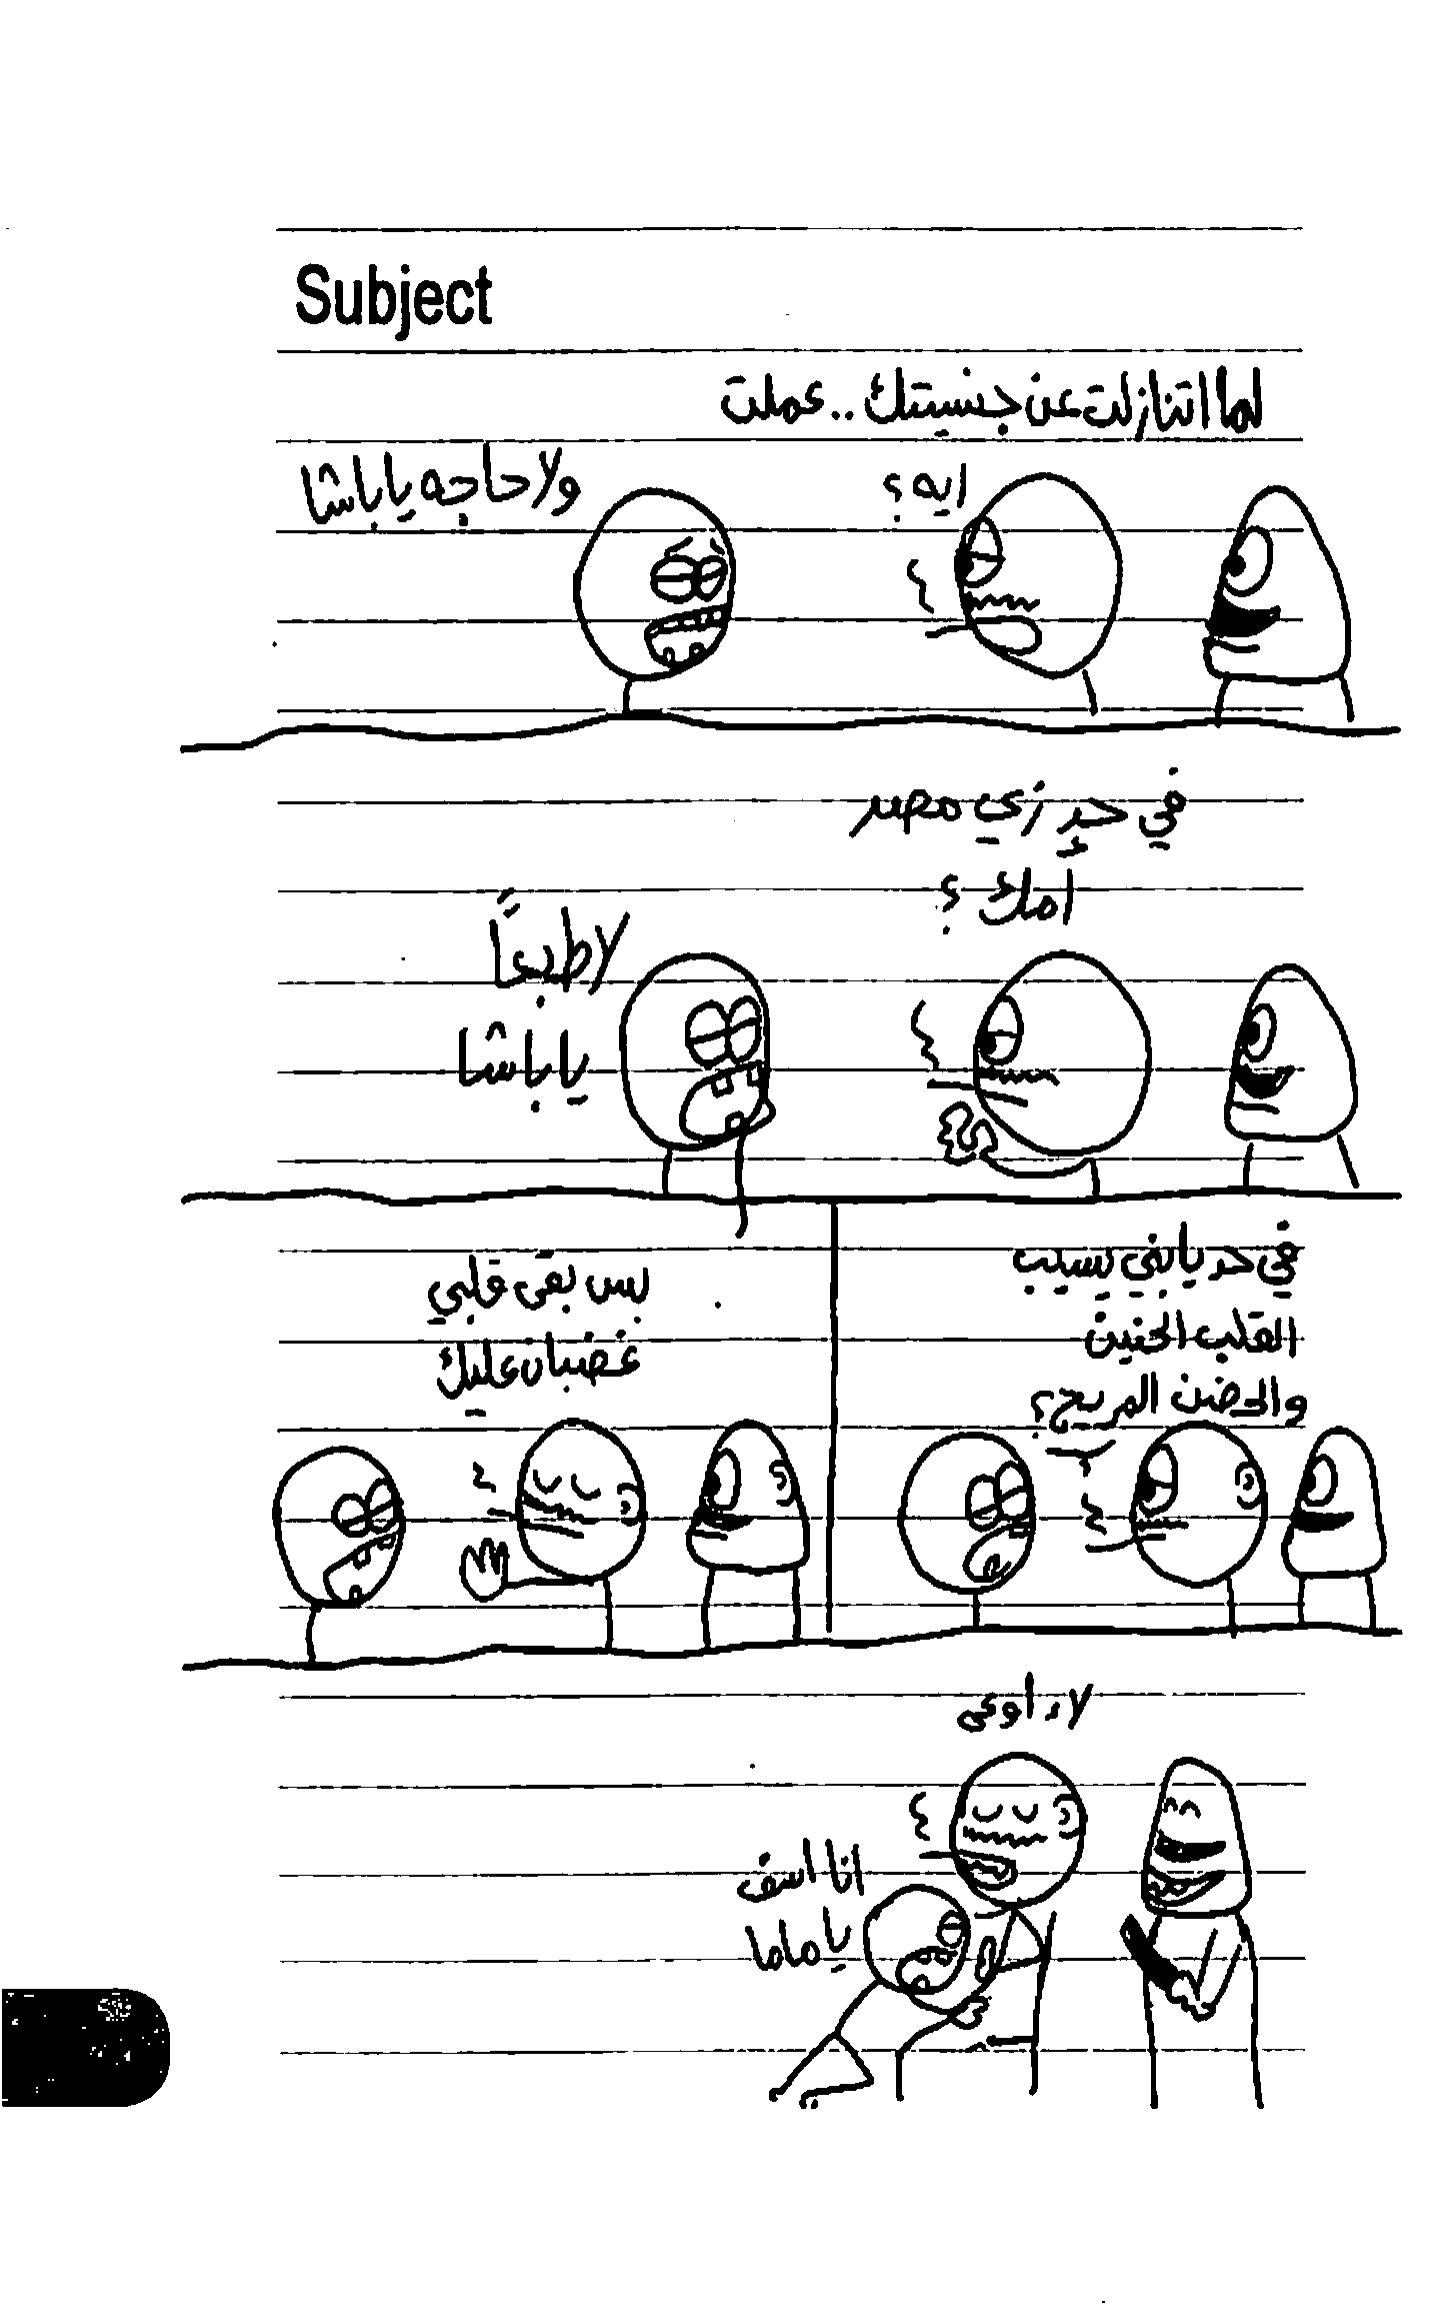 Subject
لما اتنازلت عن جنسيتك .. عملت
ايه ؟
ولا حاجه يا باشا
في حد زي مصر
امك ؟
لا طبعاً
يا باشا
في حد يا بني يسيب
القلب الحنين
والحضن المريح ؟
بس بقى قلبي
غضبان عليك
لا
انا اسف
يا ماما